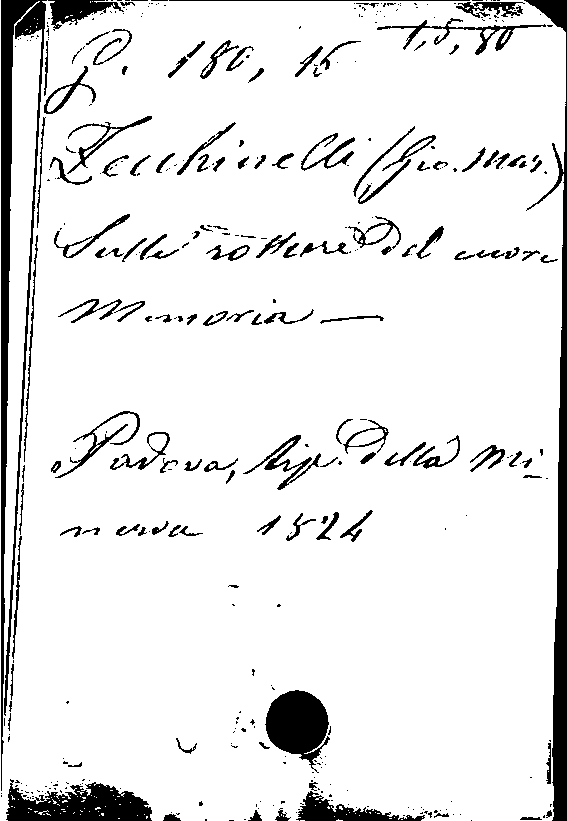 P. 180, 15 1,5,80
Zecchinelli (Gio. Mar.)
Sulle rotture del cuore
Memoria —
Padova, tip. della Mi-
nerva 1824